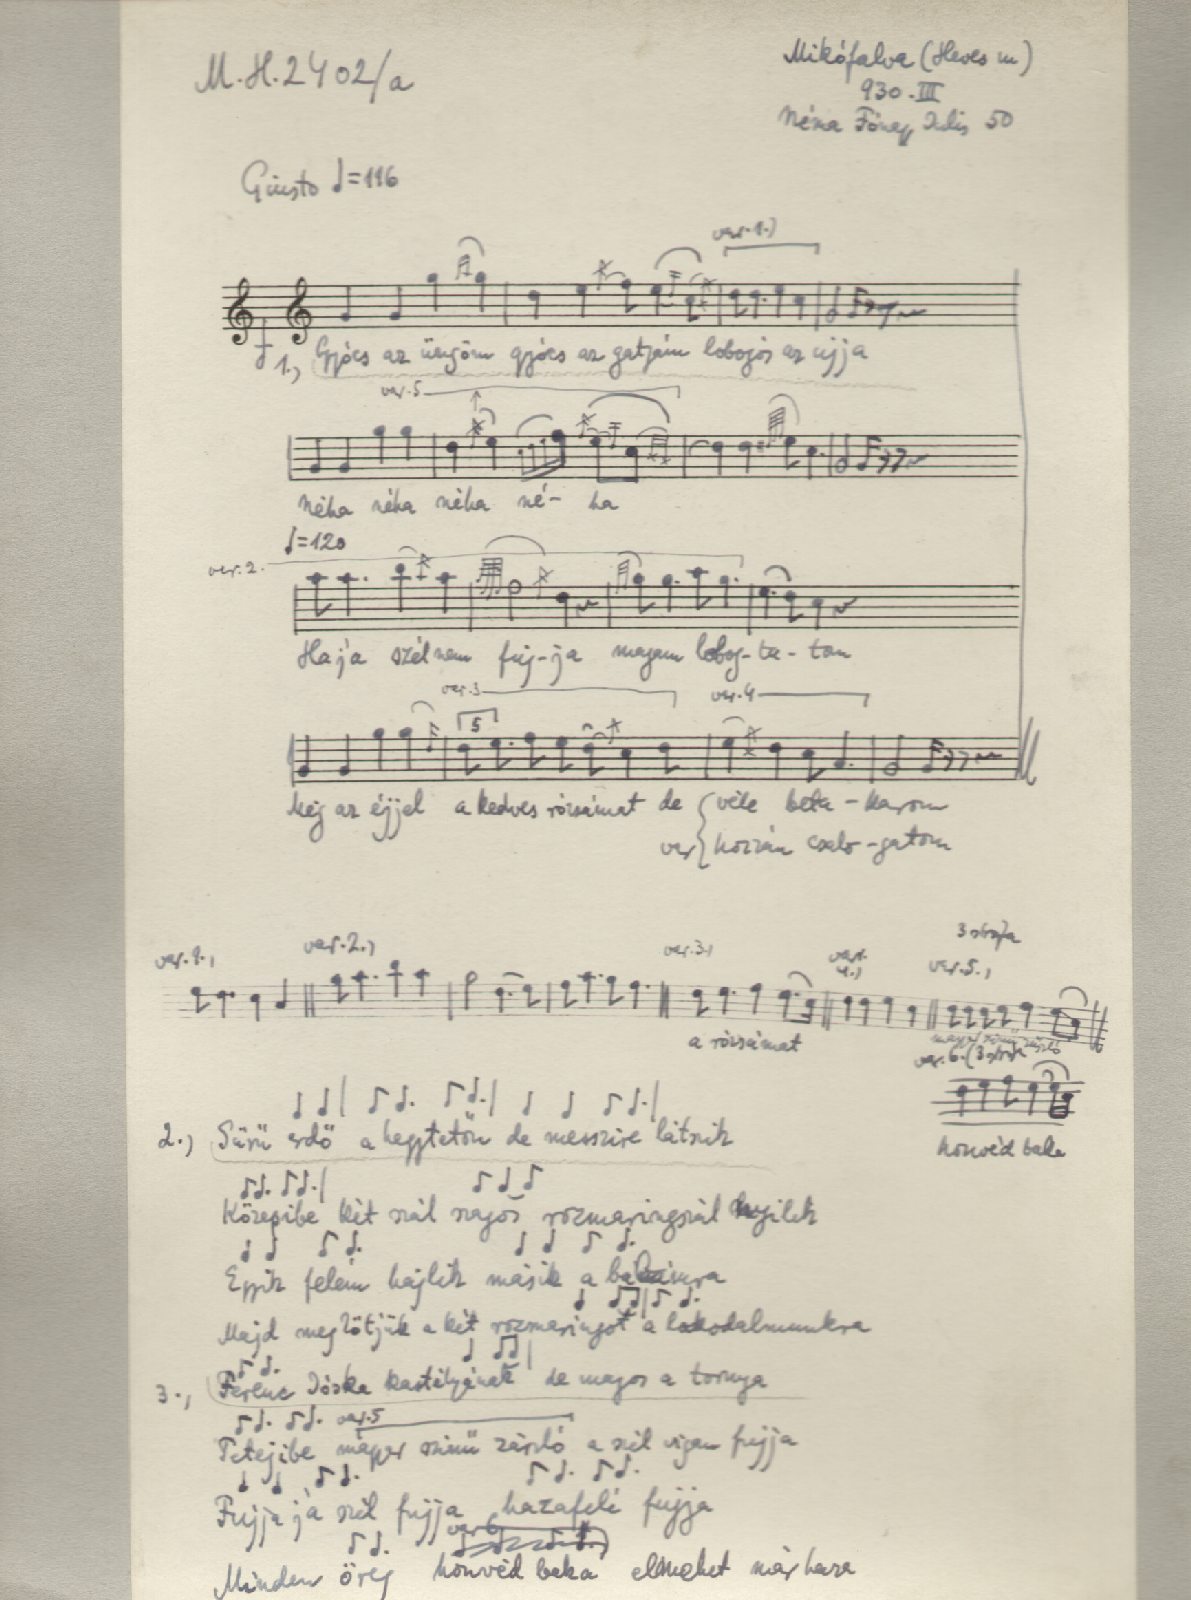 M.H.2402/a
Mikófalva (Heves m)
930.III
Néma Julis 50
Giusto ♩=116
var.1.)
1., Gyócs az üngöm gyócs az gatyám lobogós az ujja
var.5
Néha néha néha né- ha
♩=120
var.2.
Haj'a szél nem fúj-ja magam lobog-ta-tom
var.3
var.4
5
Még az éjjel a kedves rózsámat de véle beta-karom
var hozzám csalo-gatom
3 strófa
var.1.,
var.2.,
var.3.,
var.4.,
var.5.,
a rózsámat
magyar szinü zászló
var.6. (3 strófa
honvéd baka
2.) Sürü erdő a hegytetőn de messzire látszik
Közepibe két szál magos rozmaringszál nyilik
Egyik felém hajlik másik a babámra
Majd megkötjük a két rozmaringot a lakodalmunkra
3., Ferenc Jóska kastélyának de magos a tornya
var.5
Tetejibe magyar szinü zászló a szél vigan fujja
Fujja j'a szél fujja hazafelé fujja
var 6
Minden öreg honvéd baka elmehet már haza